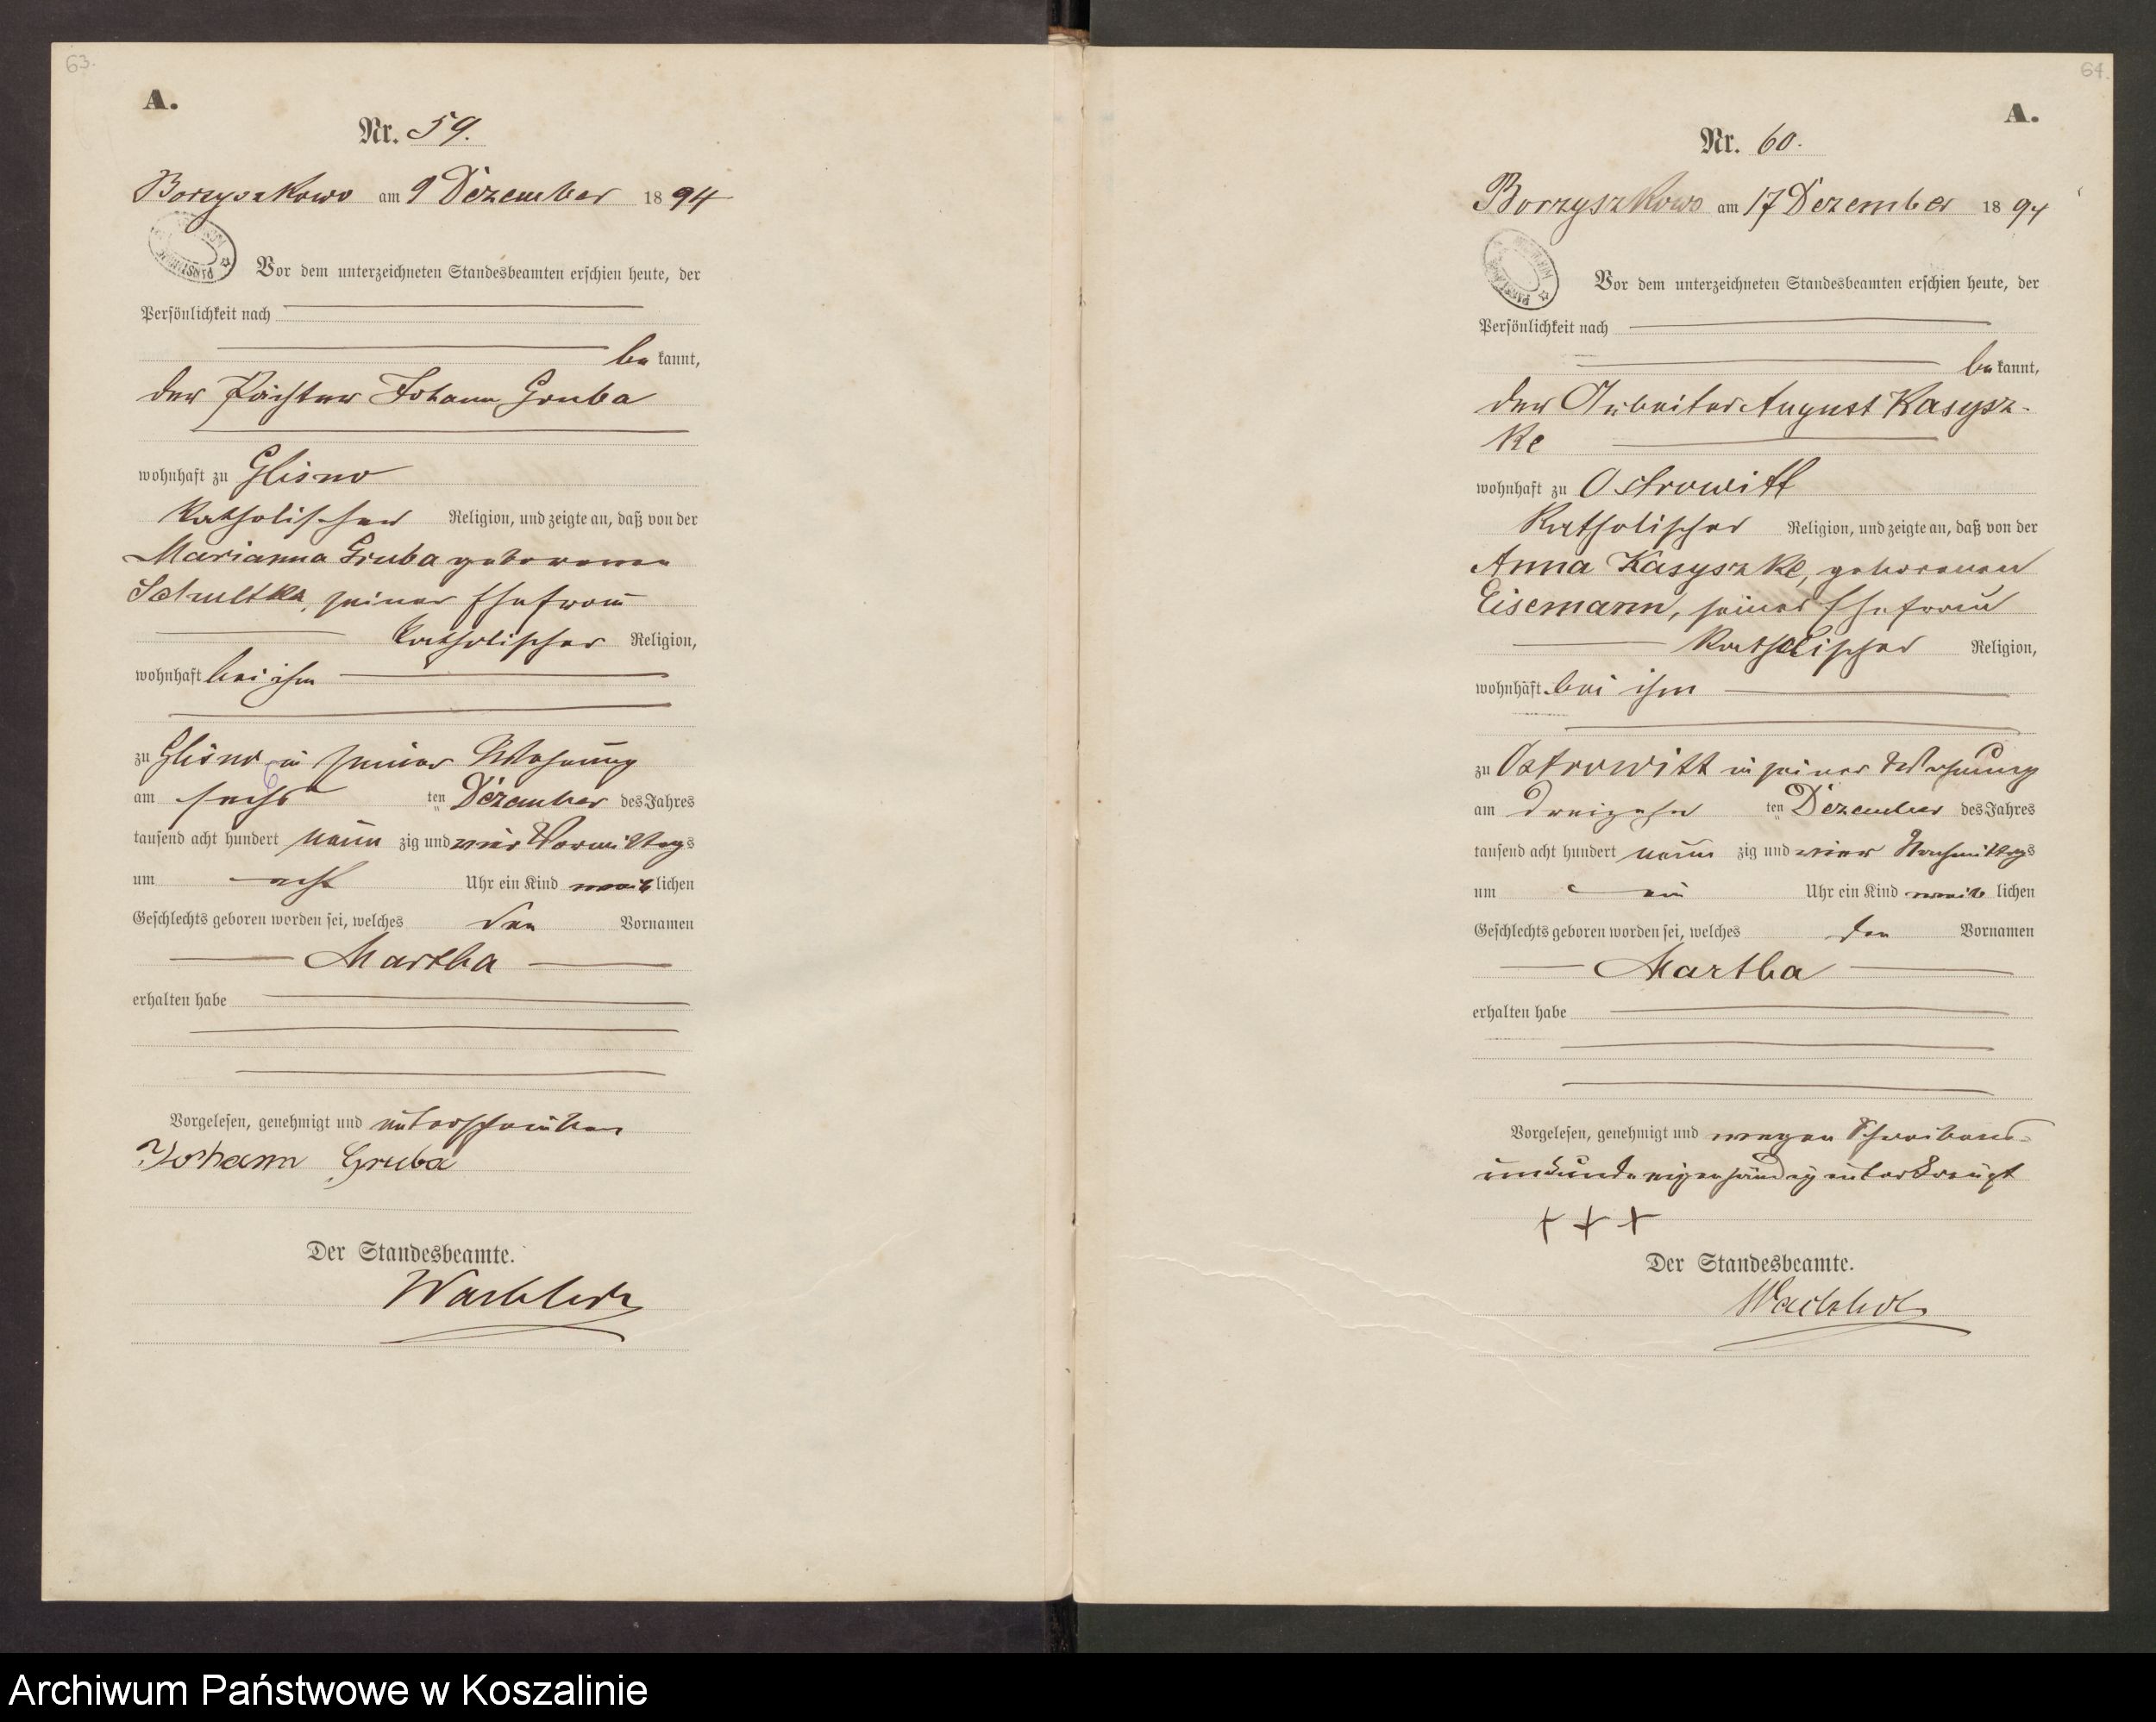 63.
A.
Nr. 59.
Borzyszkowo am 9 Dezember 1894
Vor dem unterzeichneten Standesbeamten erschien heute, der
Persönlichkeit nach
be kannt,
der Pächter Johann Gruba
wohnhaft zu Glisno
katholischer Religion, und zeigte an, daß von der
Marianna Gruba geborenen
Schultka, seiner Ehefrau
katholischer Religion,
wohnhaft bei ihm
zu Glisno in seiner Wohnung
am sechs ten Dezember des Jahres
tausend acht hundert neun zig und vier Vormittags
um acht Uhr ein Kind weib lichen
Geschlechts geboren worden sei, welches den Vornamen
Martha
erhalten habe
Vorgelesen, genehmigt und unterschrieben
Johann Gruba
Der Standesbeamte.
64.
A.
Nr. 60.
Borzyszkowo am 17 Dezember 1894
Vor dem unterzeichneten Standesbeamten erschien heute, der
Persönlichkeit nach
be kannt,
der Arbeiter August Kasysz-
ke
wohnhaft zu Ostrowitt
katholischer Religion, und zeigte an, daß von der
Anna Kasyszke, geborenen
Eisemann, seiner Ehefrau
katholischer Religion,
wohnhaft bei ihm
zu Ostrowitt in seiner Wohnung
am dreizehn ten Dezember des Jahres
tausend acht hundert neun zig und vier Nachmittags
um ein Uhr ein Kind weib lichen
Geschlechts geboren worden sei, welches den Vornamen
Martha
erhalten habe
Vorgelesen, genehmigt und wegen Schreibens-
unkunde eigenhändig unterkreuzt
+ + +
Der Standesbeamte.
Archiwum Państwowe w Koszalinie